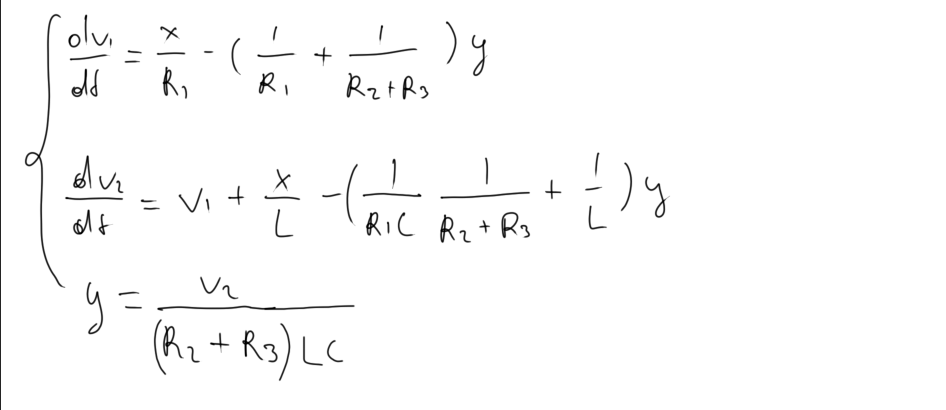 dv₁/dt = x/R₁ - (1/R₁ + 1/(R₂+R₃)) y
dv₂/dt = v₁ + x/L - (1/(R₁C) 1/(R₂+R₃) + 1/L) y
y = v₂/((R₂+R₃)LC)